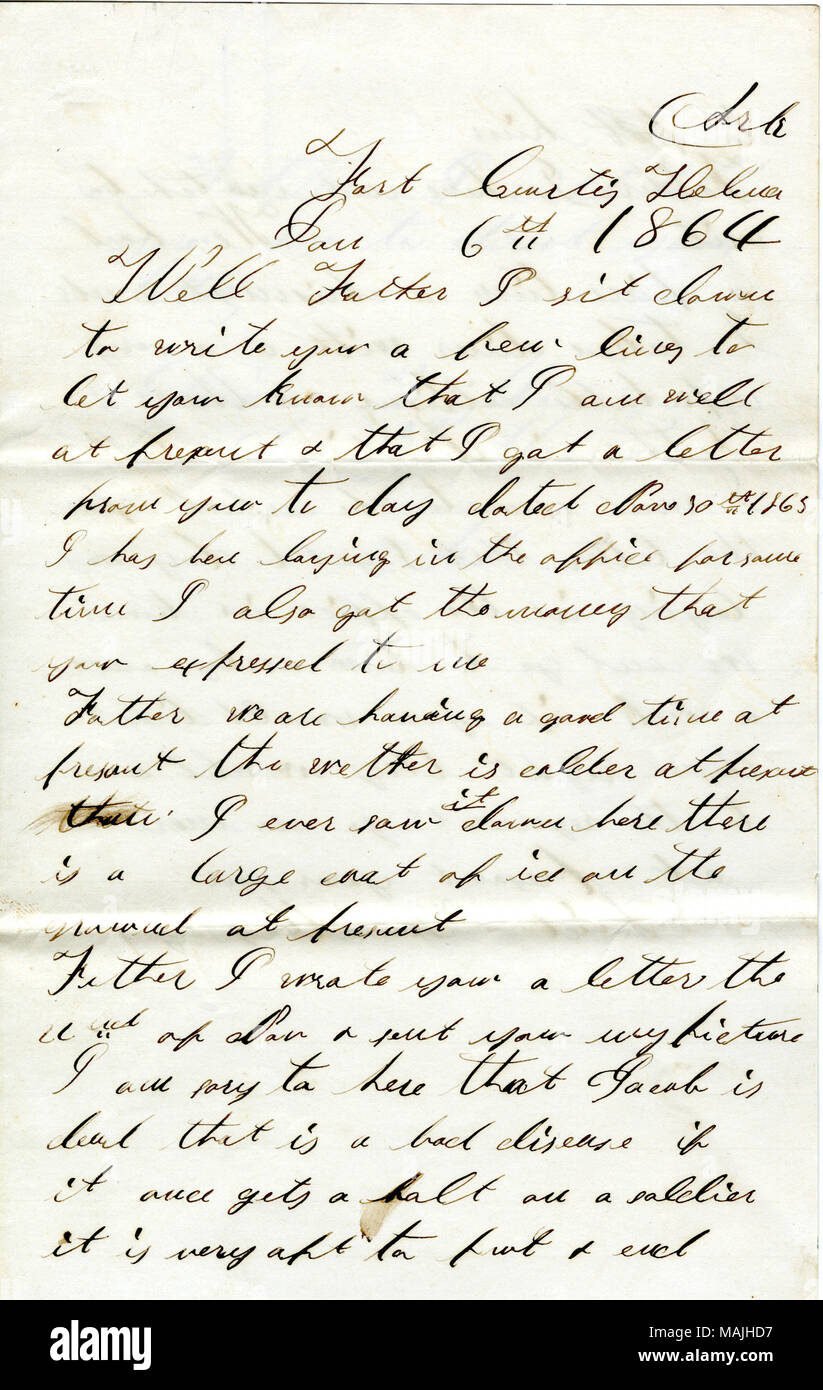 (Ark
Fort Curtis Helena
Jan 6th 1864
Well Father I sit down
to write you a few lines to
let you know that I am well
at present & that I got a letter
from you to day dated Nov 30th 1863
I has ben laying in the office for some
time I also got the money that
you expressed to me
Father we are having a good time at
present the wether is colder at present
than I ever saw it down here there
is a large coat of ice on the
ground at present
Father I wrote you a letter the
of Nov & sent you my picture
I am sory to here that Jacob is
dead that is a bad disease if
it once gets a halt on a soldier
it is very apt to put & end
alamy
Image ID: MAJHD7
www.alamy.com